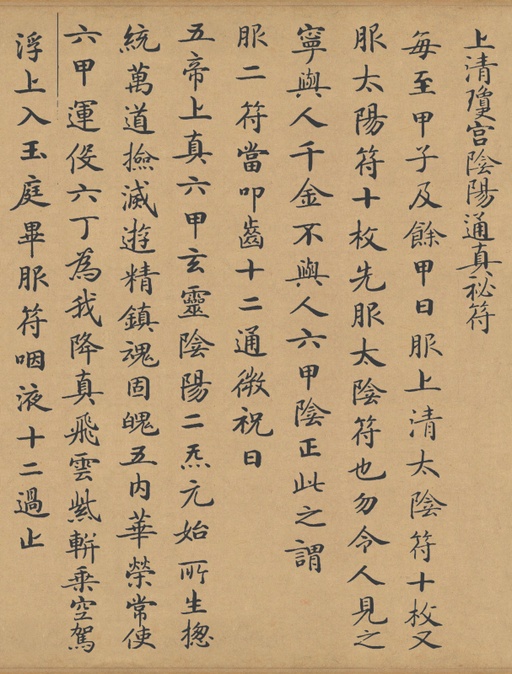 上清瓊宮陰陽通真祕符
每至甲子及餘甲日服上清太陰符十枚又
服太陽符十枚先服太陰符也勿令人見之
寧與人千金不與人六甲陰正此之謂
服二符當叩齒十二通微祝曰
五帝上真六甲玄靈陰陽二炁元始所生揔
統萬道撿滅遊精鎮魂固魄五內華榮常使
六甲運役六丁為我降真飛雲紫軿乗空駕
浮上入玉庭畢服符咽液十二過止